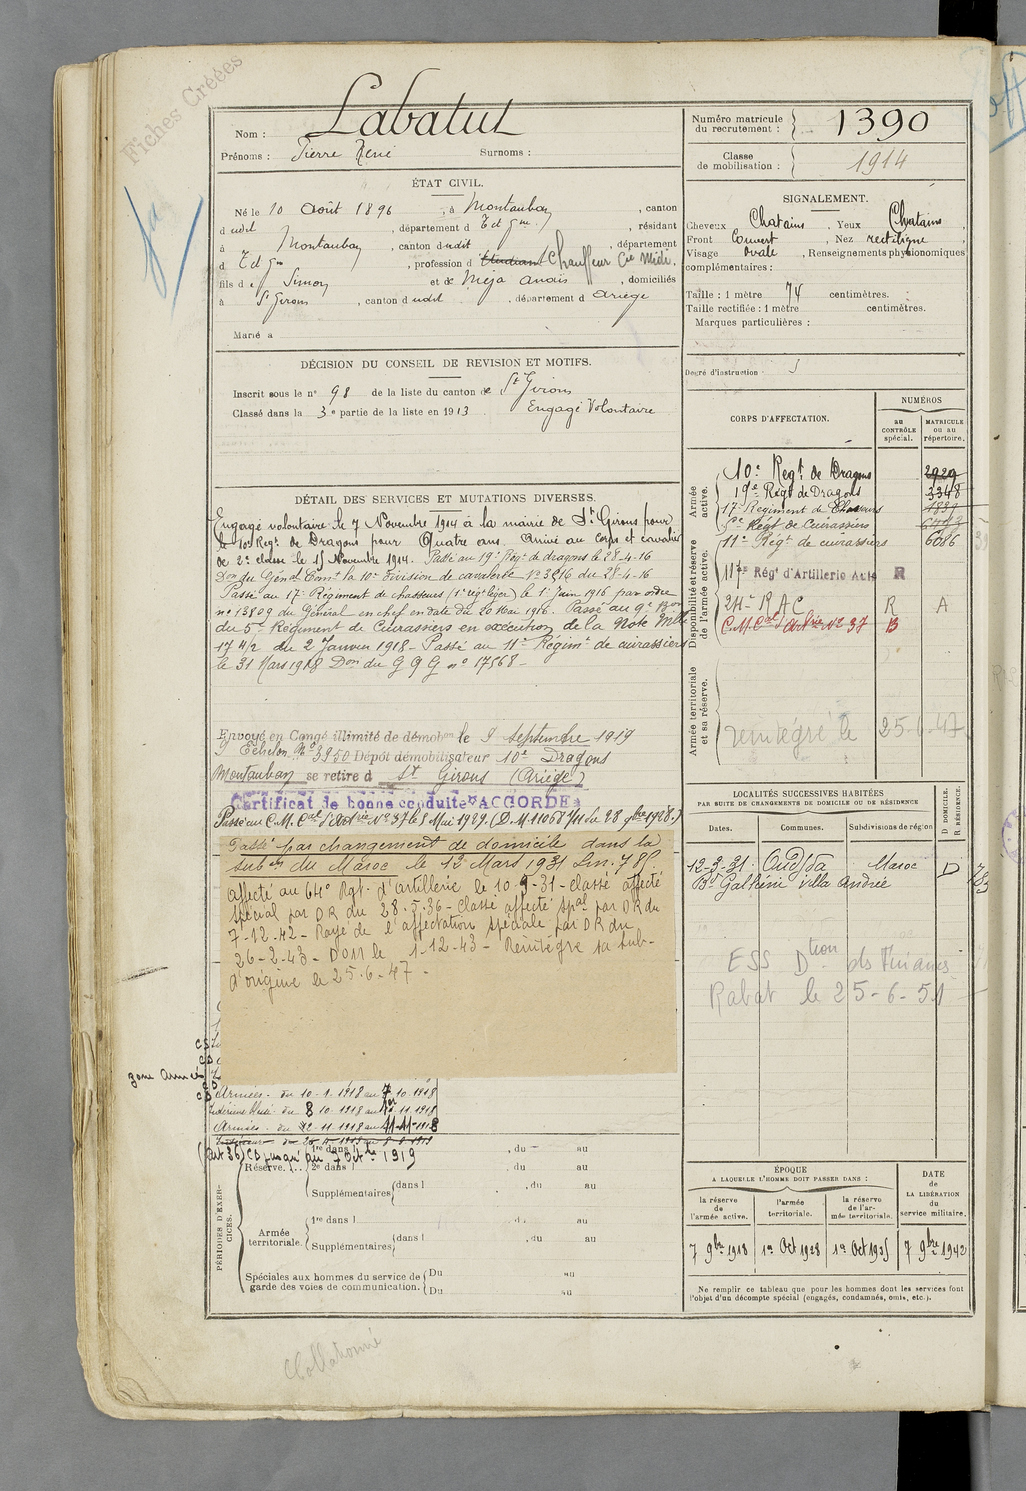 Fiches Créées
Nom : Labatut
Prénoms : Pierre René Surnoms :
Numéro matricule du recrutement : 1390
Classe de mobilisation : 1914
ÉTAT CIVIL.
Né le 10 Août 1896, à Montauban, canton
dudit, département d T et Gne, résidant
à Montauban, canton dudit, département
d T et Gne, profession d Etudiant Chauffeur Cie Midi,
fils de Simon et de Méja Anaïs, domiciliés
à St Girons, canton dudit, département d Ariège
Marié à
SIGNALEMENT.
Cheveux Chatains, Yeux Chatains
Front Couvert, Nez rectiligne
Visage ovale, Renseignements physionomiques
complémentaires :
Taille : 1 mètre 74 centimètres.
Taille rectifiée : 1 mètre centimètres.
Marques particulières :
Degré d'instruction : 3
DÉCISION DU CONSEIL DE REVISION ET MOTIFS.
Inscrit sous le n° 98 de la liste du canton de St Girons
Classé dans la 3e partie de la liste en 1913 Engagé Volontaire
DÉTAIL DES SERVICES ET MUTATIONS DIVERSES.
Engagé volontaire le 7 Novembre 1914 à la mairie de St Girons pour
le 10e Regt de Dragons pour Quatre ans. Arrivé au corps et cavalier
de 2e classe le 15 Novembre 1914. Passé au 19e Régt de dragons le 28-4-16
Don du Génal Comt la 10e division de cavalerie N° 3216 du 28-4-16
Passé au 17e Régiment de chasseurs (1er régt léger) le 1er Juin 1916 par ordre
n° 13809 du Général en chef en date du 20 Mai 1916. Passé au 9e Bon
du 5e Régiment de Cuirassiers en exécution de la Note Mlle
17 4/2 du 2 Janvier 1918 - Passé au 11e Régimt de cuirassiers
le 31 Mars 1918 Don du G Q G n° 17568 -
Envoyé en Congé illimité de démobon le 8 Septembre 1919
9 Echelon N° 3950 Dépôt démobilisateur 10e Dragons
Montauban se retire à St Girons (Ariège)
Certificat de bonne conduite "ACCORDÉ"
Passé au C.M. Cal d'Artrie N° 37 le 1 Mai 1929. (D.M. 11067/11 du 28 9bre 1928.)
Passé par changement de domicile dans la
subdon du Maroc le 12 Mars 1931
Affecté au 64° Rgt. d'artillerie le 10-9-31 - classé affecté
spécial par DR du 28-5-36 - Classé affecté spal par DR du
7-12-42 - Rayé de l'affectation spéciale par DR du
26-2-43 - DOM le 1-12-43 - Réintégré sa sub-
d'origine le 25-6-47 -
zone Armées
Armées - du 10-1-1918 au 7-10-1918
Intérieur du 8 10-1918 au 11-1918
Armées - du 12-11-1918 au 11-11-1918
(art 36) CD jusqu'au 7 Octbre 1919
CORPS D'AFFECTATION.
NUMÉROS
au CONTRÔLE spécial.
MATRICULE ou au répertoire.
Armée active.
10e Regt de Dragons 2929
19e Régt de Dragons 3348
17e Régiment de Chasseurs 1839
5e Régt de Cuirassiers
11e Régt de cuirassiers 6086
Disponibilité et réserve de l'armée active.
117e Régt d'Artillerie Auto R
24e RAC R A
C.M. Cal d'Artrie N° 37 B
Armée territoriale et sa réserve.
réintégré le 25-6-47
LOCALITÉS SUCCESSIVES HABITÉES
PAR SUITE DE CHANGEMENTS DE DOMICILE OU DE RÉSIDENCE
Dates. Communes. Subdivisions de région D DOMICILE. R RÉSIDENCE.
12-3-31 Oudjda Maroc D
Bd Galliéni villa Andrée
ESS Dtion des Finances
Rabat le 25-6-51
PÉRIODES D'EXERCICES.
Réserve.
1re dans l , du au
2e dans l , du au
Supplémentaires dans l , du au
Armée territoriale.
1re dans l , du au
Supplémentaires dans l , du au
Spéciales aux hommes du service de garde des voies de communication.
Du au
Du au
ÉPOQUE
A LAQUELLE L'HOMME DOIT PASSER DANS :
la réserve de l'armée active.
l'armée territoriale.
la réserve de l'armée territoriale.
DATE de LA LIBÉRATION du service militaire.
7 9bre 1918 1er Oct 1928 1er Oct 1935 7 9bre 1942
Ne remplir ce tableau que pour les hommes dont les services font
l'objet d'un décompte spécial (engagés, condamnés, omis, etc.).
Collationné